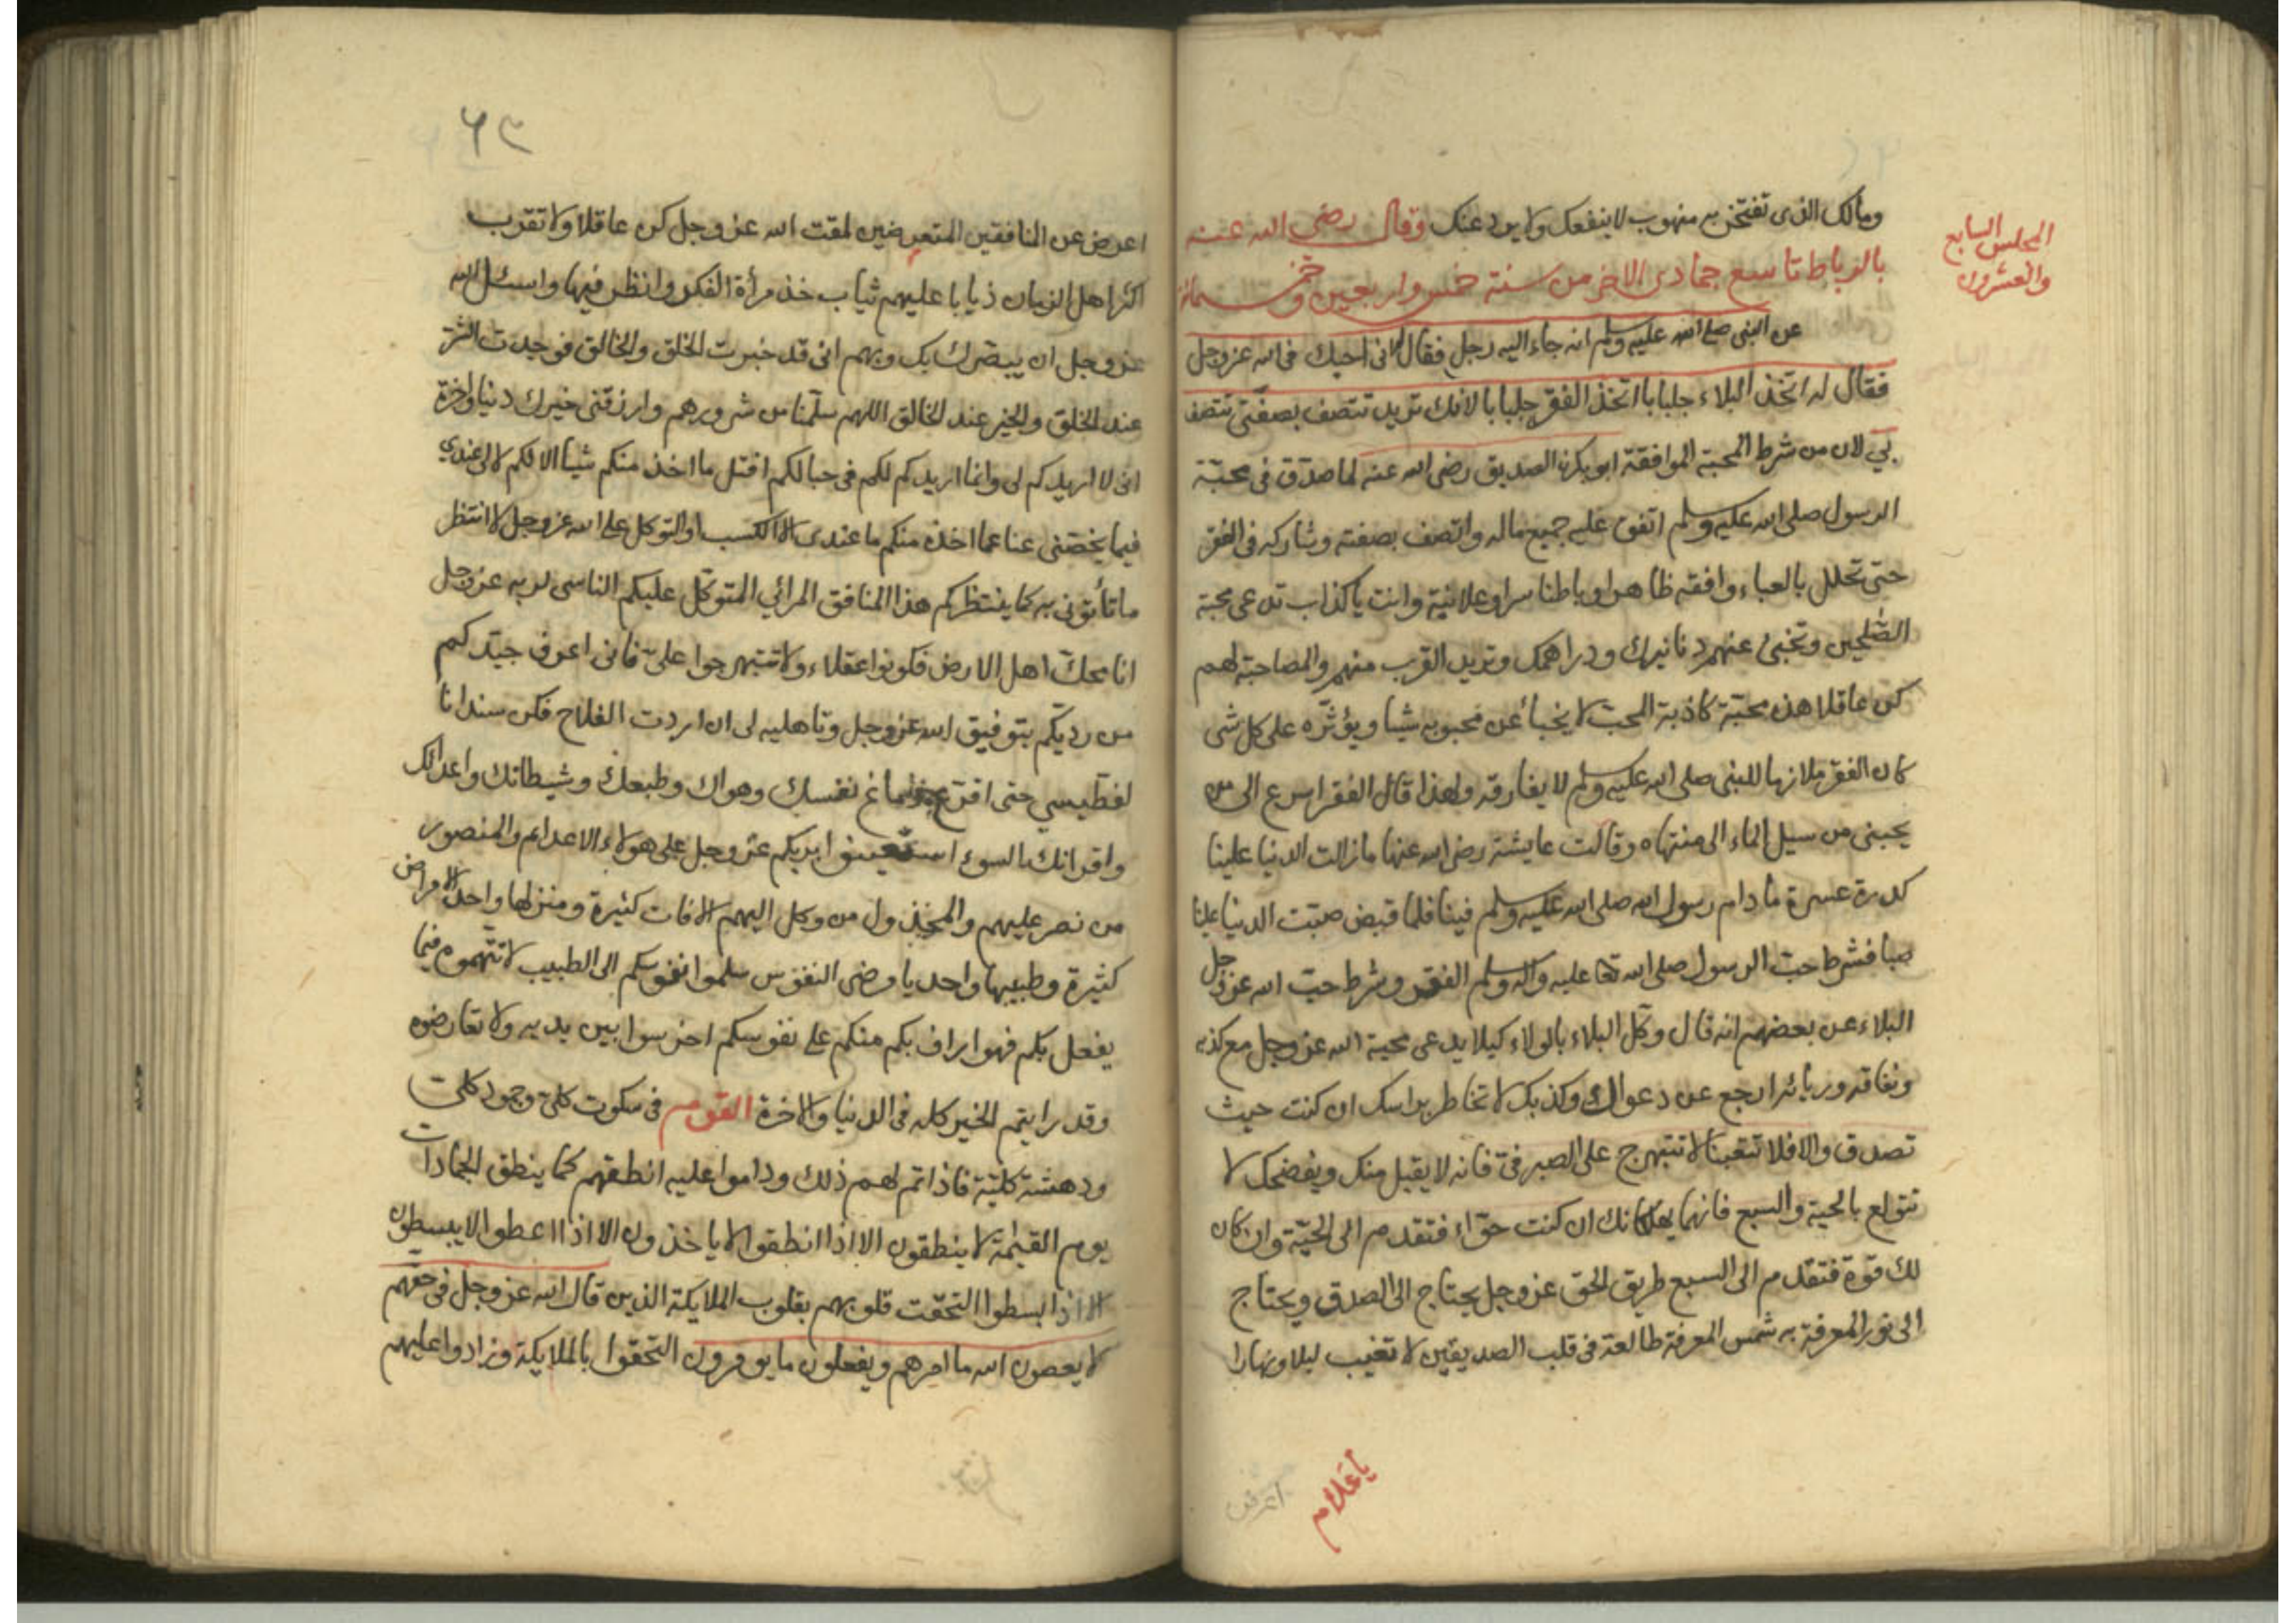 المجلس السابع
والعشرون
ومالك الذى تفتخر به منهوب لا ينفعك ولا يرد عنك وقال رضي الله عنه
بالرباط تاسع جمادى الاخر من سنة خمس واربعين وخمسمائة
عن النبى صلى الله عليه وسلم انه جاء اليه رجل فقال له انى احبك فى الله عز وجل
فقال له اتخذ البلاء جلبابا اتخذ الفقر جلبابا لانك تريد تتصف بصفتى تتصف
بي لان من شرط المحبة الموافقة ابو بكر الصديق رضى الله عنه لما صدق فى محبة
الرسول صلى الله عليه وسلم اتفق عليه جميع ماله واتصف بصفته وشاركه فى الفقر
حتى تخلل بالعباء وافقه ظاهرا وباطنا سرا وعلانية وانت يا كذاب تدعى محبة
الصلحين وتخبئ عنهم دنانيرك ودراهمك وتريد القرب منهم والمصاحبة لهم
كن عاقلا هذه محبة كاذبة المحب لا يخبأ عن محبوبه شيأ ويؤثره على كل شى
كان الفقر ملازما للنبى صلى الله عليه وسلم لا يفارقه ولهذا قال الفقر اسرع الى من
يحبنى من سيل الماء الى منتهاه وقالت عايشة رضى الله عنها مازالت الدنيا علينا
كدرة عسرة ما دام رسول الله صلى الله عليه وسلم فينا فلما قبض صبت الدنيا علينا
صبا فشرط حب الرسول صلى الله تعا عليه واله وسلم الفقر وشرط حب الله عز وجل
البلاء عن بعضهم انه قال وكل البلاء بالولاء كيلا يدعى محبة الله عز وجل مع كذبه
ونفاقه وريائه ارجع عن دعواك وكذبك لا تخاطر براسك ان كنت حيث
تصدق والا فلا تتعبنا لا تتبهرج على الصيرفى فانه لا يقبل منك ويفضحك لا
تتولع بالحية والسبع فانهما يهلكانك ان كنت حواء فتقدم الى الحية وان كان
لك قوة فتقدم الى السبع طريق الحق عز وجل يحتاج الى الصدق ويحتاج
الى نور المعرفة به شمس المعرفة طالعة فى قلب الصديقين لا تغيب ليلا ونهارا
يا غلام
اعرض
٦٢
اعرض عن المنافقين المتعرضين لمقت الله عز وجل كن عاقلا ولا تقرب
اكثر اهل الزمان ذيابا عليهم ثياب خذ مرأة الفكر وانظر فيها واسئل الله
عز وجل ان يبصرك بك وبهم انى قد خبرت الخلق والخالق فوجدت الشر
عند الخلق والخير عند الخالق اللهم سلمنا من شرورهم وارزقنى خيرك دنيا واخرة
انى لا اريدكم لى وانما اريدكم لكم فى حبالكم افتل ما اخذ منكم شيأ الا لكم لا لى عندى
فيما يخصنى عنا عما اخذه منكم ما عندى الا الكسب او التوكل على الله عز وجل لا انتظر
ما تأتونى به كما ينتظركم هذا المنافق المرائي المتوكل عليكم الناسى لربه عز وجل
انا محك اهل الارض فكونوا عقلاء ولا تتبهرجوا على فانى اعرف جيدكم
من رديكم بتوفيق الله عز وجل وتاهليه لى ان اردت الفلاح فكن سندانا
لفطيسي حتى اقرع دماغ نفسك وهواك وطبعك وشيطانك واعدائك
واقرانك السوء استعينوا بربكم عز وجل على هولاء الاعداء والمنصور
من نصر عليهم والمخذول من وكل اليهم الافات كثيرة ومنزلها واحد الامراض
كثيرة وطبيبها واحد يا مرضى النفوس سلموا نفوسكم الى الطبيب لا تتهموه فيما
يفعل بكم فهو اراف بكم منكم على نفوسكم اخرسوا بين يديه ولا تعارضوه
وقد رايتم الخير كله فى الدنيا والاخرة القوم فى سكوت كلى وجمود كلى
ودهشة كلية فاذا تم لهم ذلك وداموا عليه انطقهم كما ينطق الجمادات
يوم القيمة لا ينطقون الا اذا انطقوا لا ياخذون الا اذا اعطوا لا يبسطون
الا اذا بسطوا التحقت قلوبهم بقلوب الملايكة الذين قال الله عز وجل فى حقهم
لا يعصون الله ما امرهم ويفعلون ما يومرون التحقوا بالملايكة وزادوا عليهم